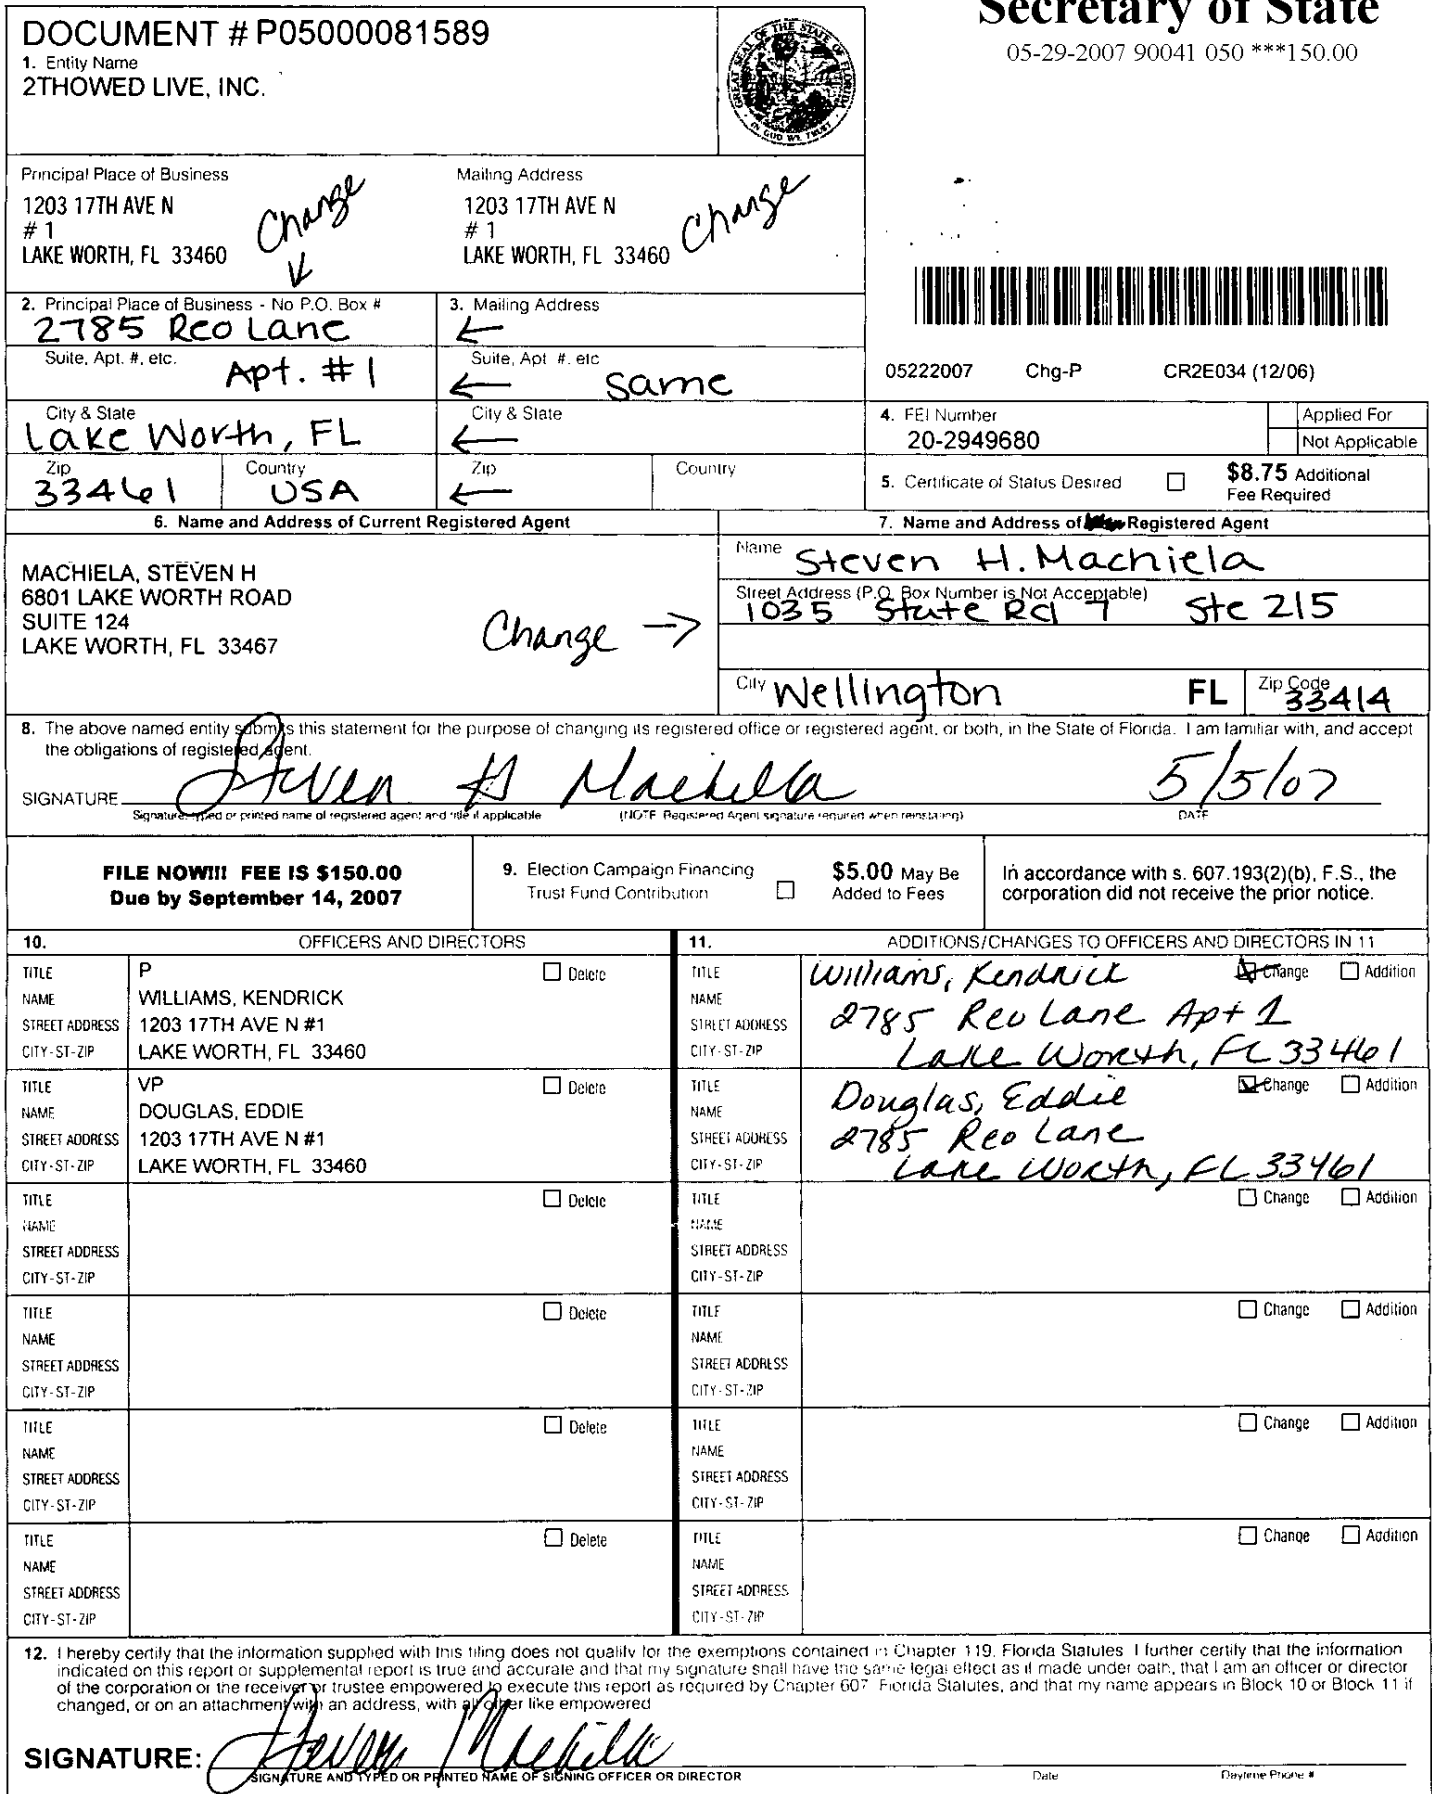 Secretary of State
05-29-2007 90041 050 ***150.00
DOCUMENT # P05000081589
1. Entity Name
2THOWED LIVE, INC.
GREAT SEAL OF THE STATE OF FLORIDA
IN GOD WE TRUST
Principal Place of Business
1203 17TH AVE N
# 1
LAKE WORTH, FL 33460
Change
Mailing Address
1203 17TH AVE N
# 1
LAKE WORTH, FL 33460
Change
2. Principal Place of Business - No P.O. Box #
2785 Reo Lane
3. Mailing Address
Suite, Apt. #, etc.
Apt. #1
Suite, Apt #. etc
same
05222007 Chg-P CR2E034 (12/06)
City & State
Lake Worth, FL
City & State
4. FEI Number
20-2949680
Applied For
Not Applicable
Zip
33461
Country
USA
Zip
Country
5. Certificate of Status Desired
$8.75 Additional
Fee Required
6. Name and Address of Current Registered Agent
MACHIELA, STEVEN H
6801 LAKE WORTH ROAD
SUITE 124
LAKE WORTH, FL 33467
Change
7. Name and Address of Registered Agent
Name Steven H. Machiela
Street Address (P.O. Box Number is Not Acceptable)
1035 State Rd 7 Ste 215
City Wellington FL Zip Code 33414
8. The above named entity submits this statement for the purpose of changing its registered office or registered agent, or both, in the State of Florida. I am familiar with, and accept
the obligations of registered agent.
SIGNATURE Steven H Machiela 5/5/07
Signature, typed or printed name of registered agent and title if applicable (NOTE Registered Agent signature required when reinstating) DATE
FILE NOW!!! FEE IS $150.00
Due by September 14, 2007
9. Election Campaign Financing
Trust Fund Contribution
$5.00 May Be
Added to Fees
In accordance with s. 607.193(2)(b), F.S., the
corporation did not receive the prior notice.
10. OFFICERS AND DIRECTORS
11. ADDITIONS/CHANGES TO OFFICERS AND DIRECTORS IN 11
TITLE P Delete
NAME WILLIAMS, KENDRICK
STREET ADDRESS 1203 17TH AVE N #1
CITY-ST-ZIP LAKE WORTH, FL 33460
TITLE Williams, Kendrick Change Addition
NAME
STREET ADDRESS 2785 Reo Lane Apt 1
CITY-ST-ZIP Lake Worth, FL 33461
TITLE VP Delete
NAME DOUGLAS, EDDIE
STREET ADDRESS 1203 17TH AVE N #1
CITY-ST-ZIP LAKE WORTH, FL 33460
TITLE Douglas, Eddie Change Addition
NAME
STREET ADDRESS 2785 Reo Lane
CITY-ST-ZIP Lake Worth, FL 33461
TITLE Delete
NAME
STREET ADDRESS
CITY-ST-ZIP
TITLE Change Addition
NAME
STREET ADDRESS
CITY-ST-ZIP
TITLE Delete
NAME
STREET ADDRESS
CITY-ST-ZIP
TITLE Change Addition
NAME
STREET ADDRESS
CITY-ST-ZIP
TITLE Delete
NAME
STREET ADDRESS
CITY-ST-ZIP
TITLE Change Addition
NAME
STREET ADDRESS
CITY-ST-ZIP
TITLE Delete
NAME
STREET ADDRESS
CITY-ST-ZIP
TITLE Change Addition
NAME
STREET ADDRESS
CITY-ST-ZIP
12. I hereby certify that the information supplied with this filing does not qualify for the exemptions contained in Chapter 119, Florida Statutes. I further certify that the information
indicated on this report or supplemental report is true and accurate and that my signature shall have the same legal effect as if made under oath, that I am an officer or director
of the corporation or the receiver or trustee empowered to execute this report as required by Chapter 607 Florida Statutes, and that my name appears in Block 10 or Block 11 if
changed, or on an attachment with an address, with all other like empowered
SIGNATURE: Steven Machiela
SIGNATURE AND TYPED OR PRINTED NAME OF SIGNING OFFICER OR DIRECTOR Date Daytime Phone #